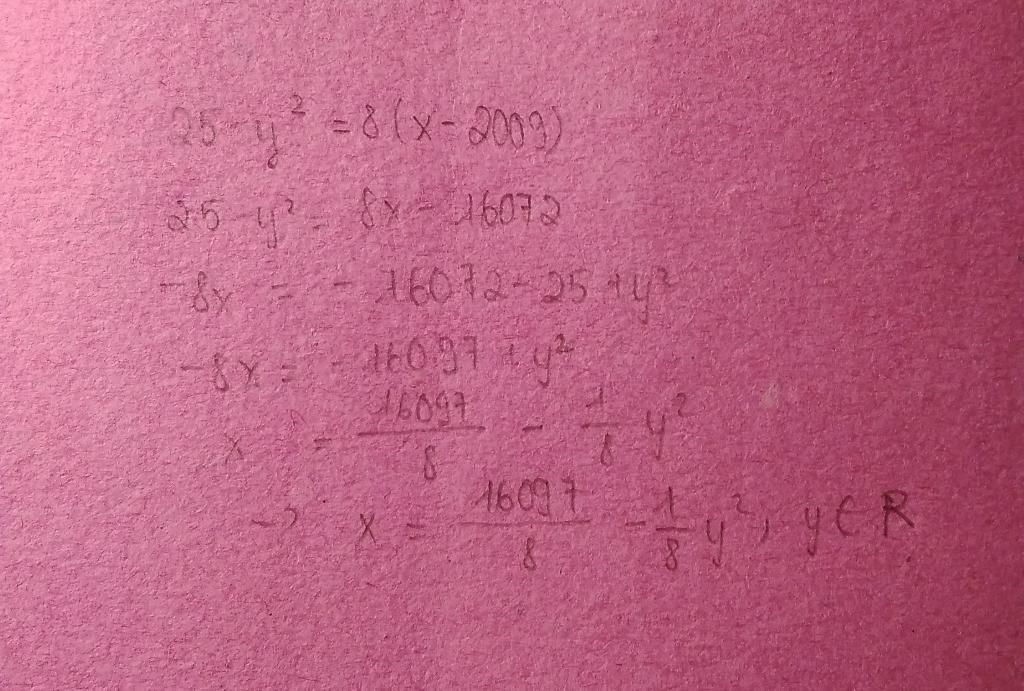 25 - y² = 8(x - 2009)
25 - y² = 8x - 16072
-8x = - 16072 - 25 + y²
-8x = - 16097 + y²
x = 16097/8 - 1/8 y²
-> x = 16097/8 - 1/8 y², y ∈ R